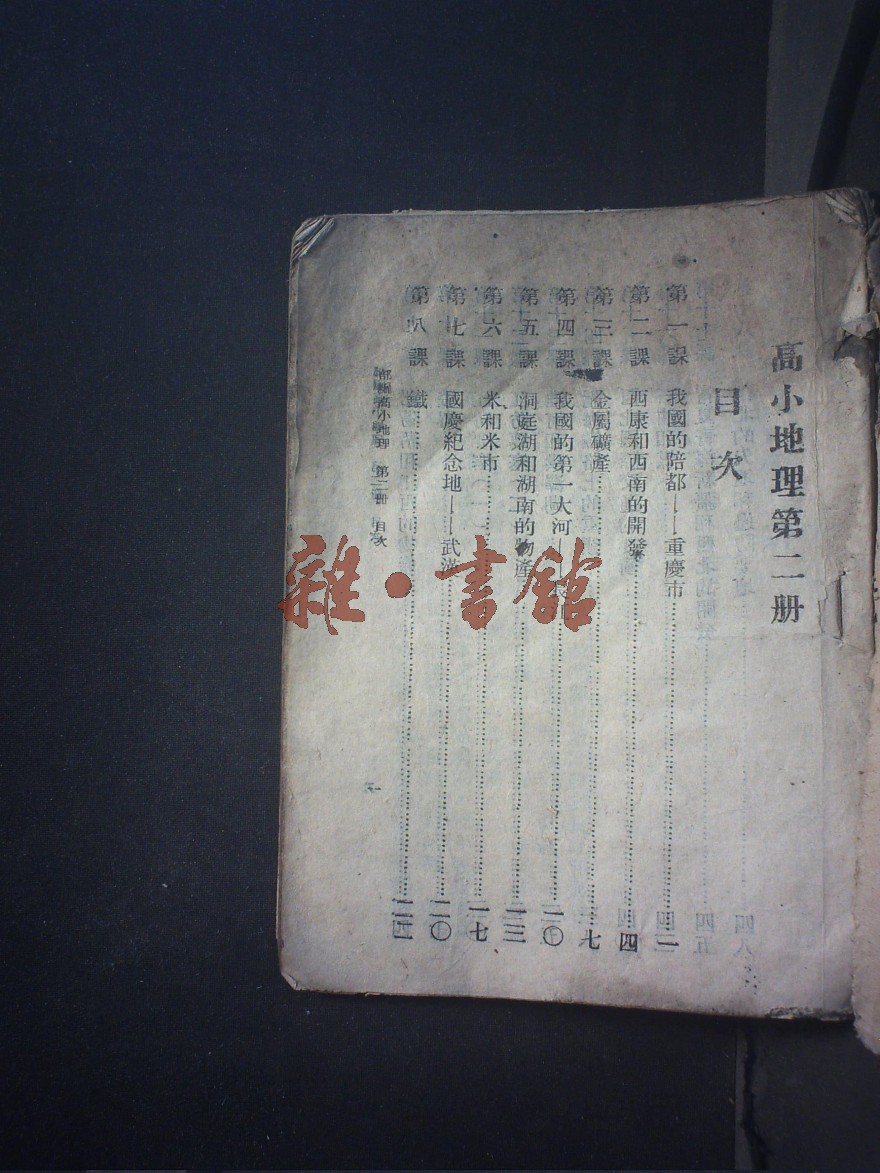 高小地理第二册
目次
第一課 我國的陪都——重慶市……一
第二課 西康和西南的開發……四
第三課 金屬礦產……七
第四課 我國的第一大河——長江……一〇
第五課 洞庭湖和湖南的物產……一三
第六課 米和米市……一七
第七課 國慶紀念地——武漢……二〇
第八課 鐵……二四
部編高小地理 第二册 目次
一
雜·書館